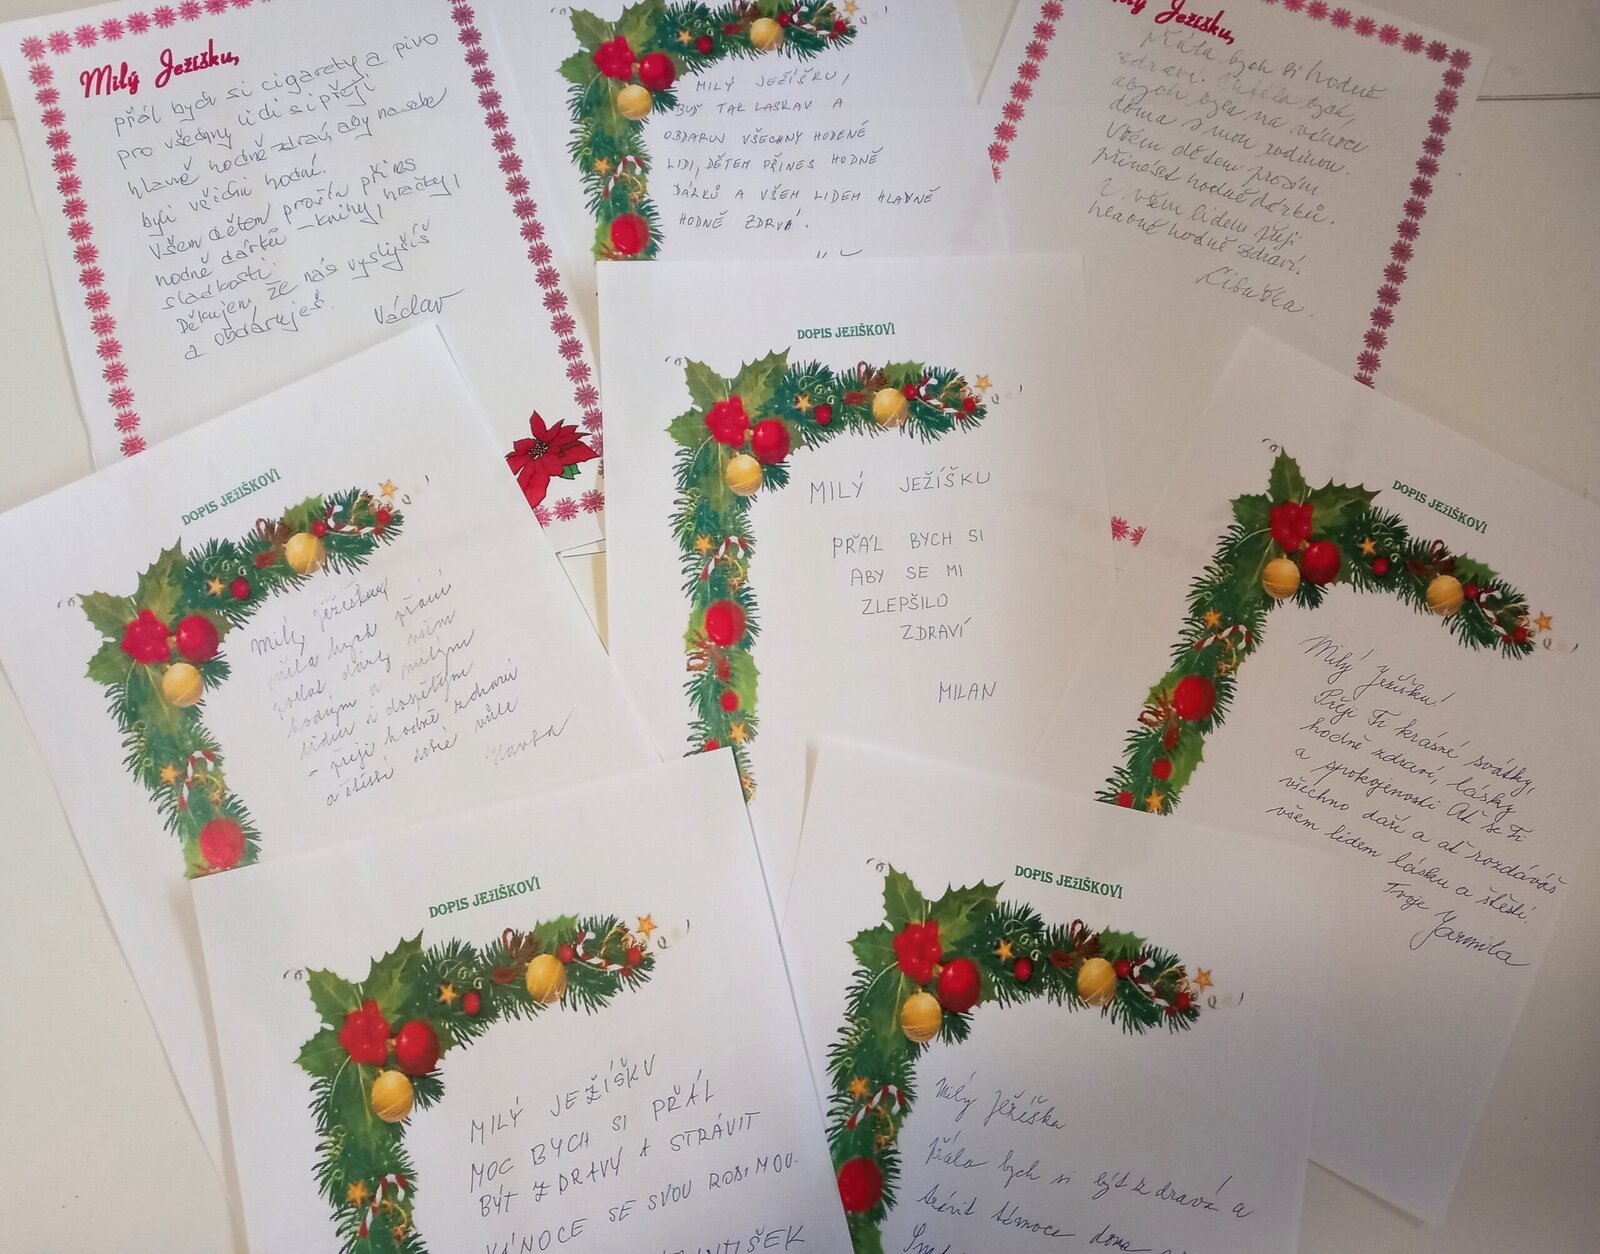 Milý Ježíšku,
přál bych si cigarety a pivo
pro všechny lidi si přeji
hlavně hodně zdraví, aby na sebe
byli všichni hodní.
Všem dětem prosím přines
hodně dárků – knihy, hračky,
sladkosti.
Děkujem, že nás vyslyšíš
a obdaruješ.
Václav
MILÝ JEŽÍŠKU,
BUĎ TAK LASKAV A
OBDARUJ VŠECHNY HODENÉ
LIDI, DĚTEM PŘINES HODNĚ
DÁRKŮ A VŠEM LIDEM HLAVNĚ
HODNĚ ZDRVÁ.
Milý Ježíšku,
přála bych si hodně
zdraví. Chtěla bych,
abych byla na vánoce
doma s mou rodinou.
Všem dětem prosím
přinéset hodně dárků.
A všem lidem přeji
hlavně hodně zdraví.
Libuška.
DOPIS JEŽIŠKOVI
Milý Ježíšku
měla bych přání
poslat dárky všem
hodným a milým
lidem i dospělým
– přeji hodně zdraví
a štěstí dobré vůle
DOPIS JEŽIŠKOVI
MILÝ JEŽÍŠKU
PŘÁL BYCH SI
ABY SE MI
ZLEPŠILO
ZDRAVÍ
MILAN
DOPIS JEŽIŠKOVI
Milý Ježíšku!
Přeji Ti krásné svátky,
hodně zdraví, lásky
a spokojenosti. Ať se Ti
všechno daří a ať rozdáváš
všem lidem lásku a štěstí.
Tvoje Jarmila
DOPIS JEŽIŠKOVI
MILÝ JEŽÍŠKU
MOC BYCH SI PŘÁL
BÝT ZDRAVÝ A STRÁVIT
VÁNOCE SE SVOU RODINOU.
DOPIS JEŽIŠKOVI
Milý Ježíšku
Přála bych si být zdravá a
strávit Vánoce doma